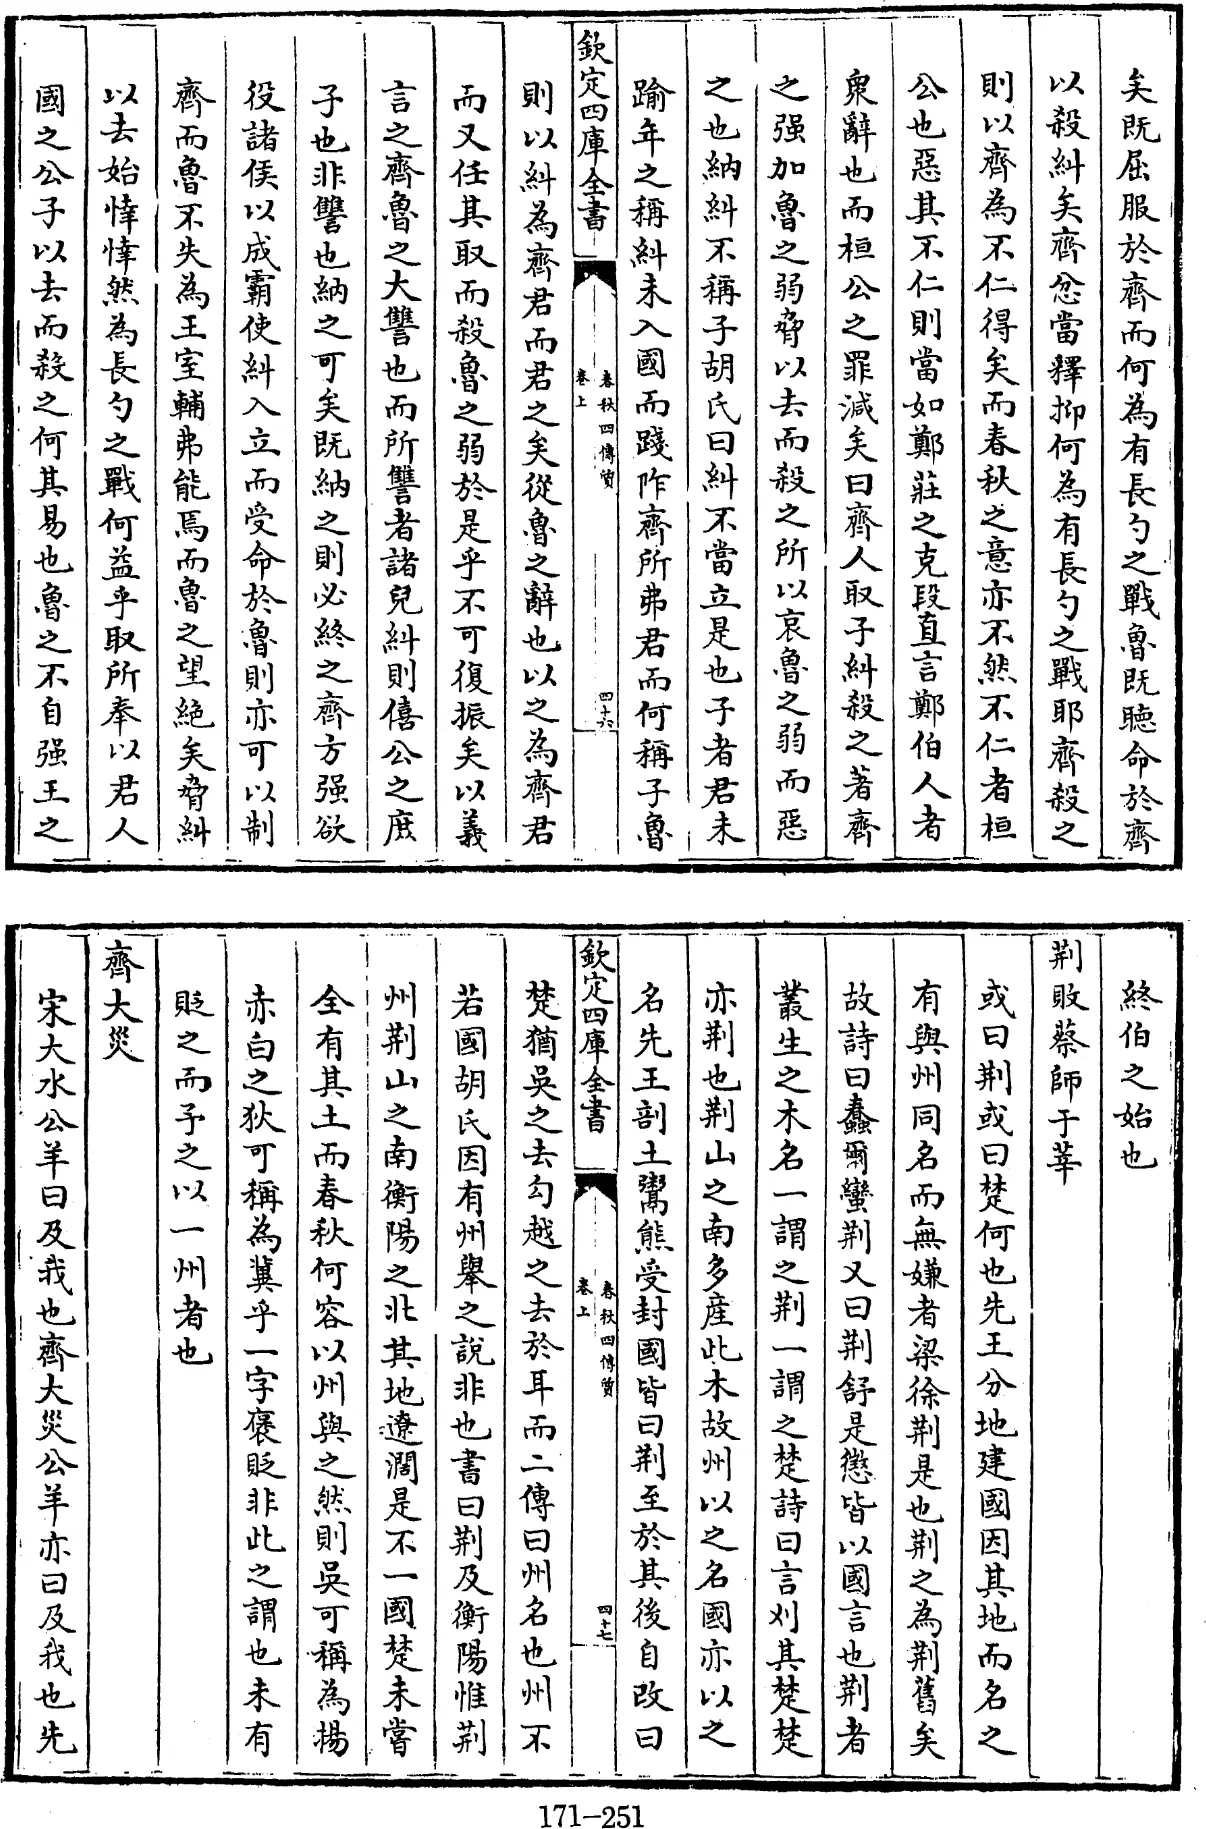 矣既屈服於齊而何為有長勺之戰魯既聽命於齊
以殺糾矣齊忿當釋抑何為有長勺之戰耶齊殺之
則以齊為不仁得矣而春秋之意亦不然不仁者桓
公也惡其不仁則當如鄭莊之克段直言鄭伯人者
衆辭也而桓公之罪減矣曰齊人取子糾殺之著齊
之强加魯之弱脅以去而殺之所以哀魯之弱而惡
之也納糾不稱子胡氏曰糾不當立是也子者君未
踰年之稱糾未入國而踐阼齊所弗君而何稱子魯
欽定四庫全書
春秋四傳質
卷上
四十六
則以糾為齊君而君之矣從魯之辭也以之為齊君
而又任其取而殺魯之弱於是乎不可復振矣以義
言之齊魯之大讐也而所讐者諸兒糾則僖公之庶
子也非讐也納之可矣既納之則必終之齊方强欲
役諸侯以成霸使糾入立而受命於魯則亦可以制
齊而魯不失為王室輔弗能焉而魯之望絕矣脅糾
以去始悻悻然為長勺之戰何益乎取所奉以君人
國之公子以去而殺之何其易也魯之不自强王之
終伯之始也
荆敗蔡師于莘
或曰荆或曰楚何也先王分地建國因其地而名之
有與州同名而無嫌者梁徐荆是也荆之為荆舊矣
故詩曰蠢爾蠻荆又曰荆舒是懲皆以國言也荆者
叢生之木名一謂之荆一謂之楚詩曰言刈其楚楚
亦荆也荆山之南多產此木故州以之名國亦以之
名先王剖土鬻熊受封國皆曰荆至於其後自改曰
欽定四庫全書
春秋四傳質
卷上
四十七
楚猶吳之去勾越之去於耳而二傳曰州名也州不
若國胡氏因有州舉之說非也書曰荆及衡陽惟荆
州荆山之南衡陽之北其地遼濶是不一國楚未嘗
全有其土而春秋何容以州與之然則吳可稱為揚
赤白之狄可稱為冀乎一字褒貶非此之謂也未有
貶之而予之以一州者也
齊大災
宋大水公羊曰及我也齊大災公羊亦曰及我也先
171-251